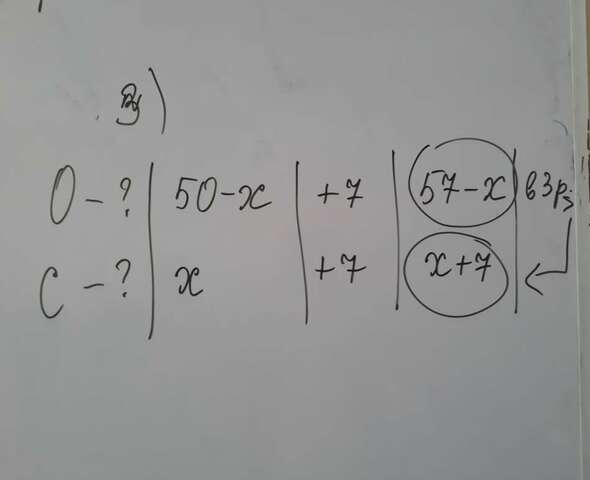 О - ? | 50 - x | + 7 | 57 - x | в 3 р.
С - ? | x | + 7 | x + 7 |